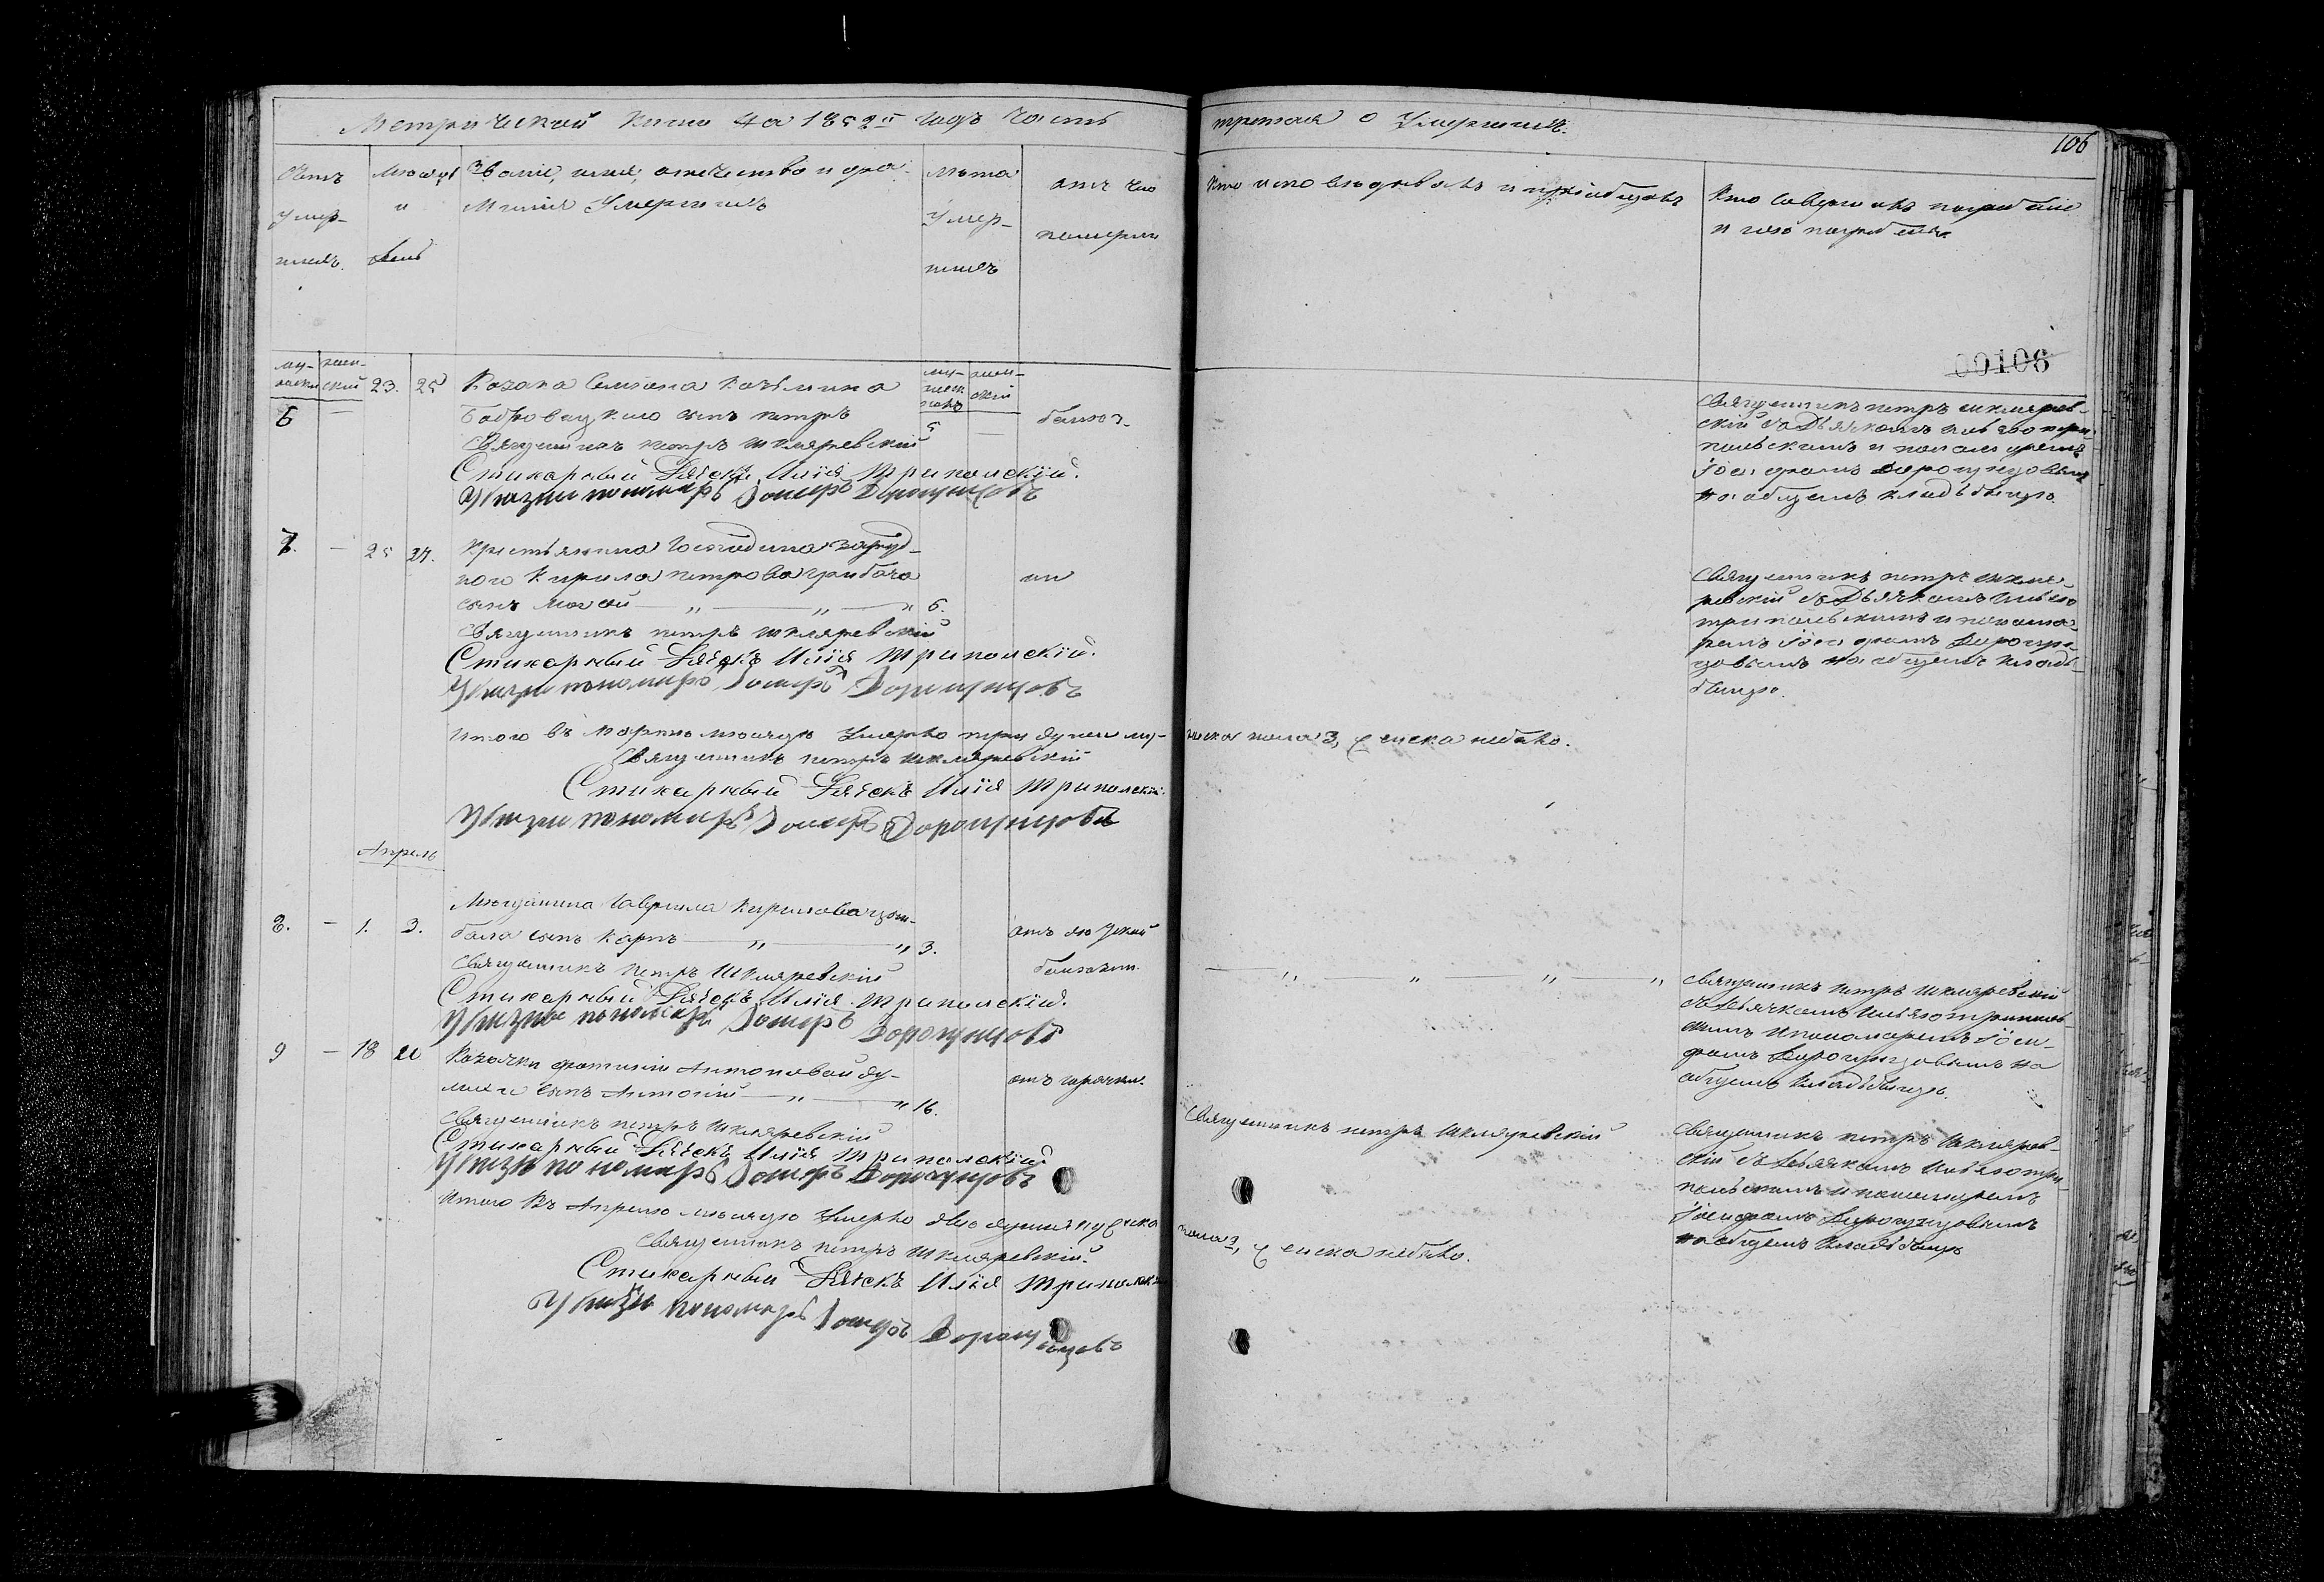 Метрической книги на 1852й годъ Часть третая о Умершихъ.
106
Счетъ Умер- шихъ.
Месяцъ и день
Званіе, имя, отечество и фа-
милія Умершихъ
Лѣта Умер- шихъ
отъ чего померли
Кто исповѣдывалъ и пріобщалъ
Кто совершалъ погребеніе
и гдѣ погребены.
00106
му- жески
жен- ский
му- жеск
жен- ский
6 — 23. 25
Козака Семіона Козьмина
Бобровицкого сынъ петръ 5 —
Священникъ петръ шкляревский
Стихарный Дячокъ Илїя Триполскїй.
пономарь Дорогунцовъ
Священникъ петръ шкляров-
ский съ Дьячкомъ Ильею три-
польскимъ и пономаремъ
Іосифомъ Дорогунцовымъ
на общемъ кладбищѣ.
7. — 25 27.
Крестьянина Господина
ного Кирила петрова грибача
сынъ — „ — „ — „ 6.
Священникъ петръ шкляревский
Стихарный Дячокъ Илїя Триполскїй.
пономарь Дорогунцовъ
Священникъ петръ шкля-
ревский съ Дьячкомъ Ильею
трипольскимъ и понома-
ремъ Іосифомъ Дорогун-
цовымъ на общемъ клад-
бищѣ.
Итого въ Мартѣ месяцѣ Умерло три души му-
жска пола 3, женска небыло.
Священникъ петръ шкляревский
Стихарный Дячокъ Илїя Триполскїй.
пономарь Дорогунцовъ
Апрель
8. — 1. 3.
Мещанина Гаврила Кирилова цим-
бала сынъ Карпъ — „ — „ 3.
отъ
Священникъ петръ Шкляревский
Стихарный Дячокъ Илїя Триполскїй.
пономарь Дорогунцовъ
— „ — „ — „ — „
Священникъ петръ шкляревский
съ Дьячкомъ Ильею триполь-
скимъ и пономаремъ Іоси-
фомъ Дорогунцовымъ на
общемъ Кладбищѣ.
9 — 18 20
Козачки фотиніи Антоновой
сынъ Антоній — „ — „ 16.
отъ горячки.
Священникъ петръ шкляревский
Стихарный Дячокъ Илїя Триполскїй
пономарь Дорогунцовъ
Священникъ петръ шкляревский
Священникъ петръ Шкляров-
ский съ Дьячкомъ Ильею три-
польскимъ и пономаремъ
Іосифомъ Дорогунцовымъ
на общемъ Кладбищѣ
Итого Въ Апрелѣ месяцѣ Умерло двѣ души мужска
пола 2, женска небыло.
Священникъ петръ шкляревский.
Стихарный Дячокъ Илїя Триполскїй
пономарь Дорогунцовъ